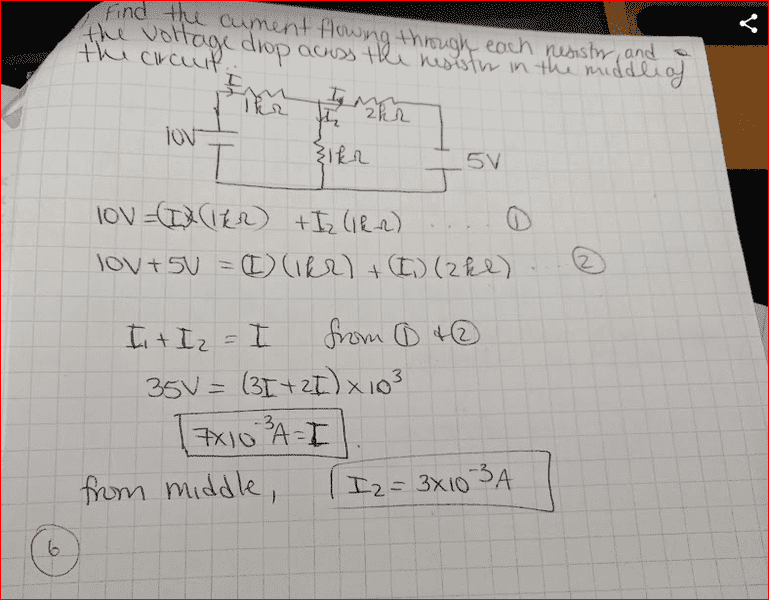 Find the current flowing through each resistor, and
the voltage drop across the resistor in the middle of
the circuit.
I
1kΩ
I₁
2kΩ
I₂
10V
1kΩ
5V
10V = (I)(1kΩ) + I₂(1kΩ) .... ①
10V+5V = (I)(1kΩ) + (I₁)(2kΩ) ... ②
I₁ + I₂ = I from ① + ②
35V = (3I+2I) × 10³
7×10⁻³A = I
from middle, I₂ = 3×10⁻³A
6